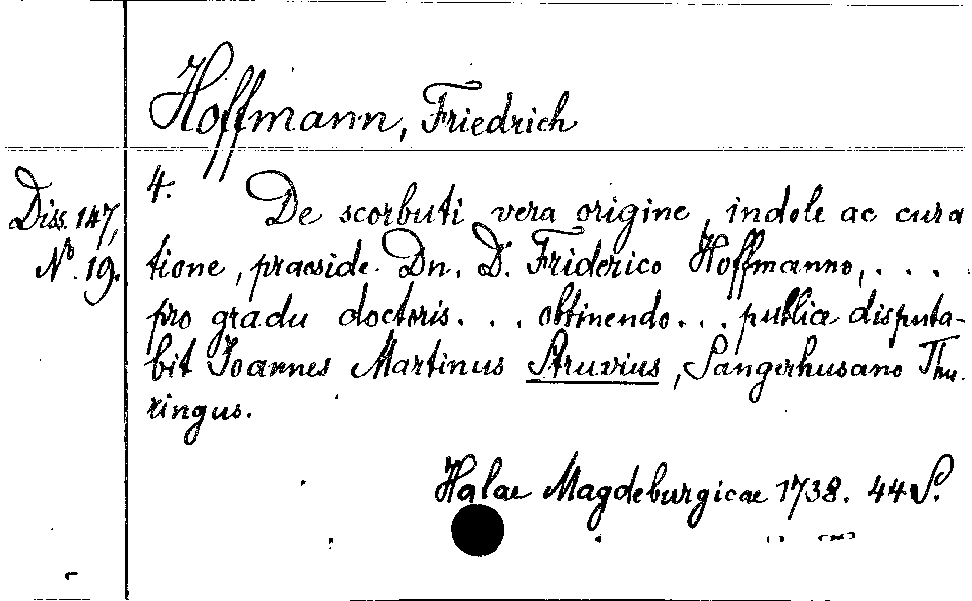 Hoffmann, Friedrich
Diss. 147,
N° 19.
4.
De scorbuti vera origine, indole ac cura
tione, praeside Dn. D. Friderico Hoffmanno, . . . .
pro gradu doctoris . . . obtinendo . . . publice disputa-
bit Joannes Martinus Struvius, Sangerhusano Thu
ringus.
Halae Magdeburgicae 1738. 44 S.